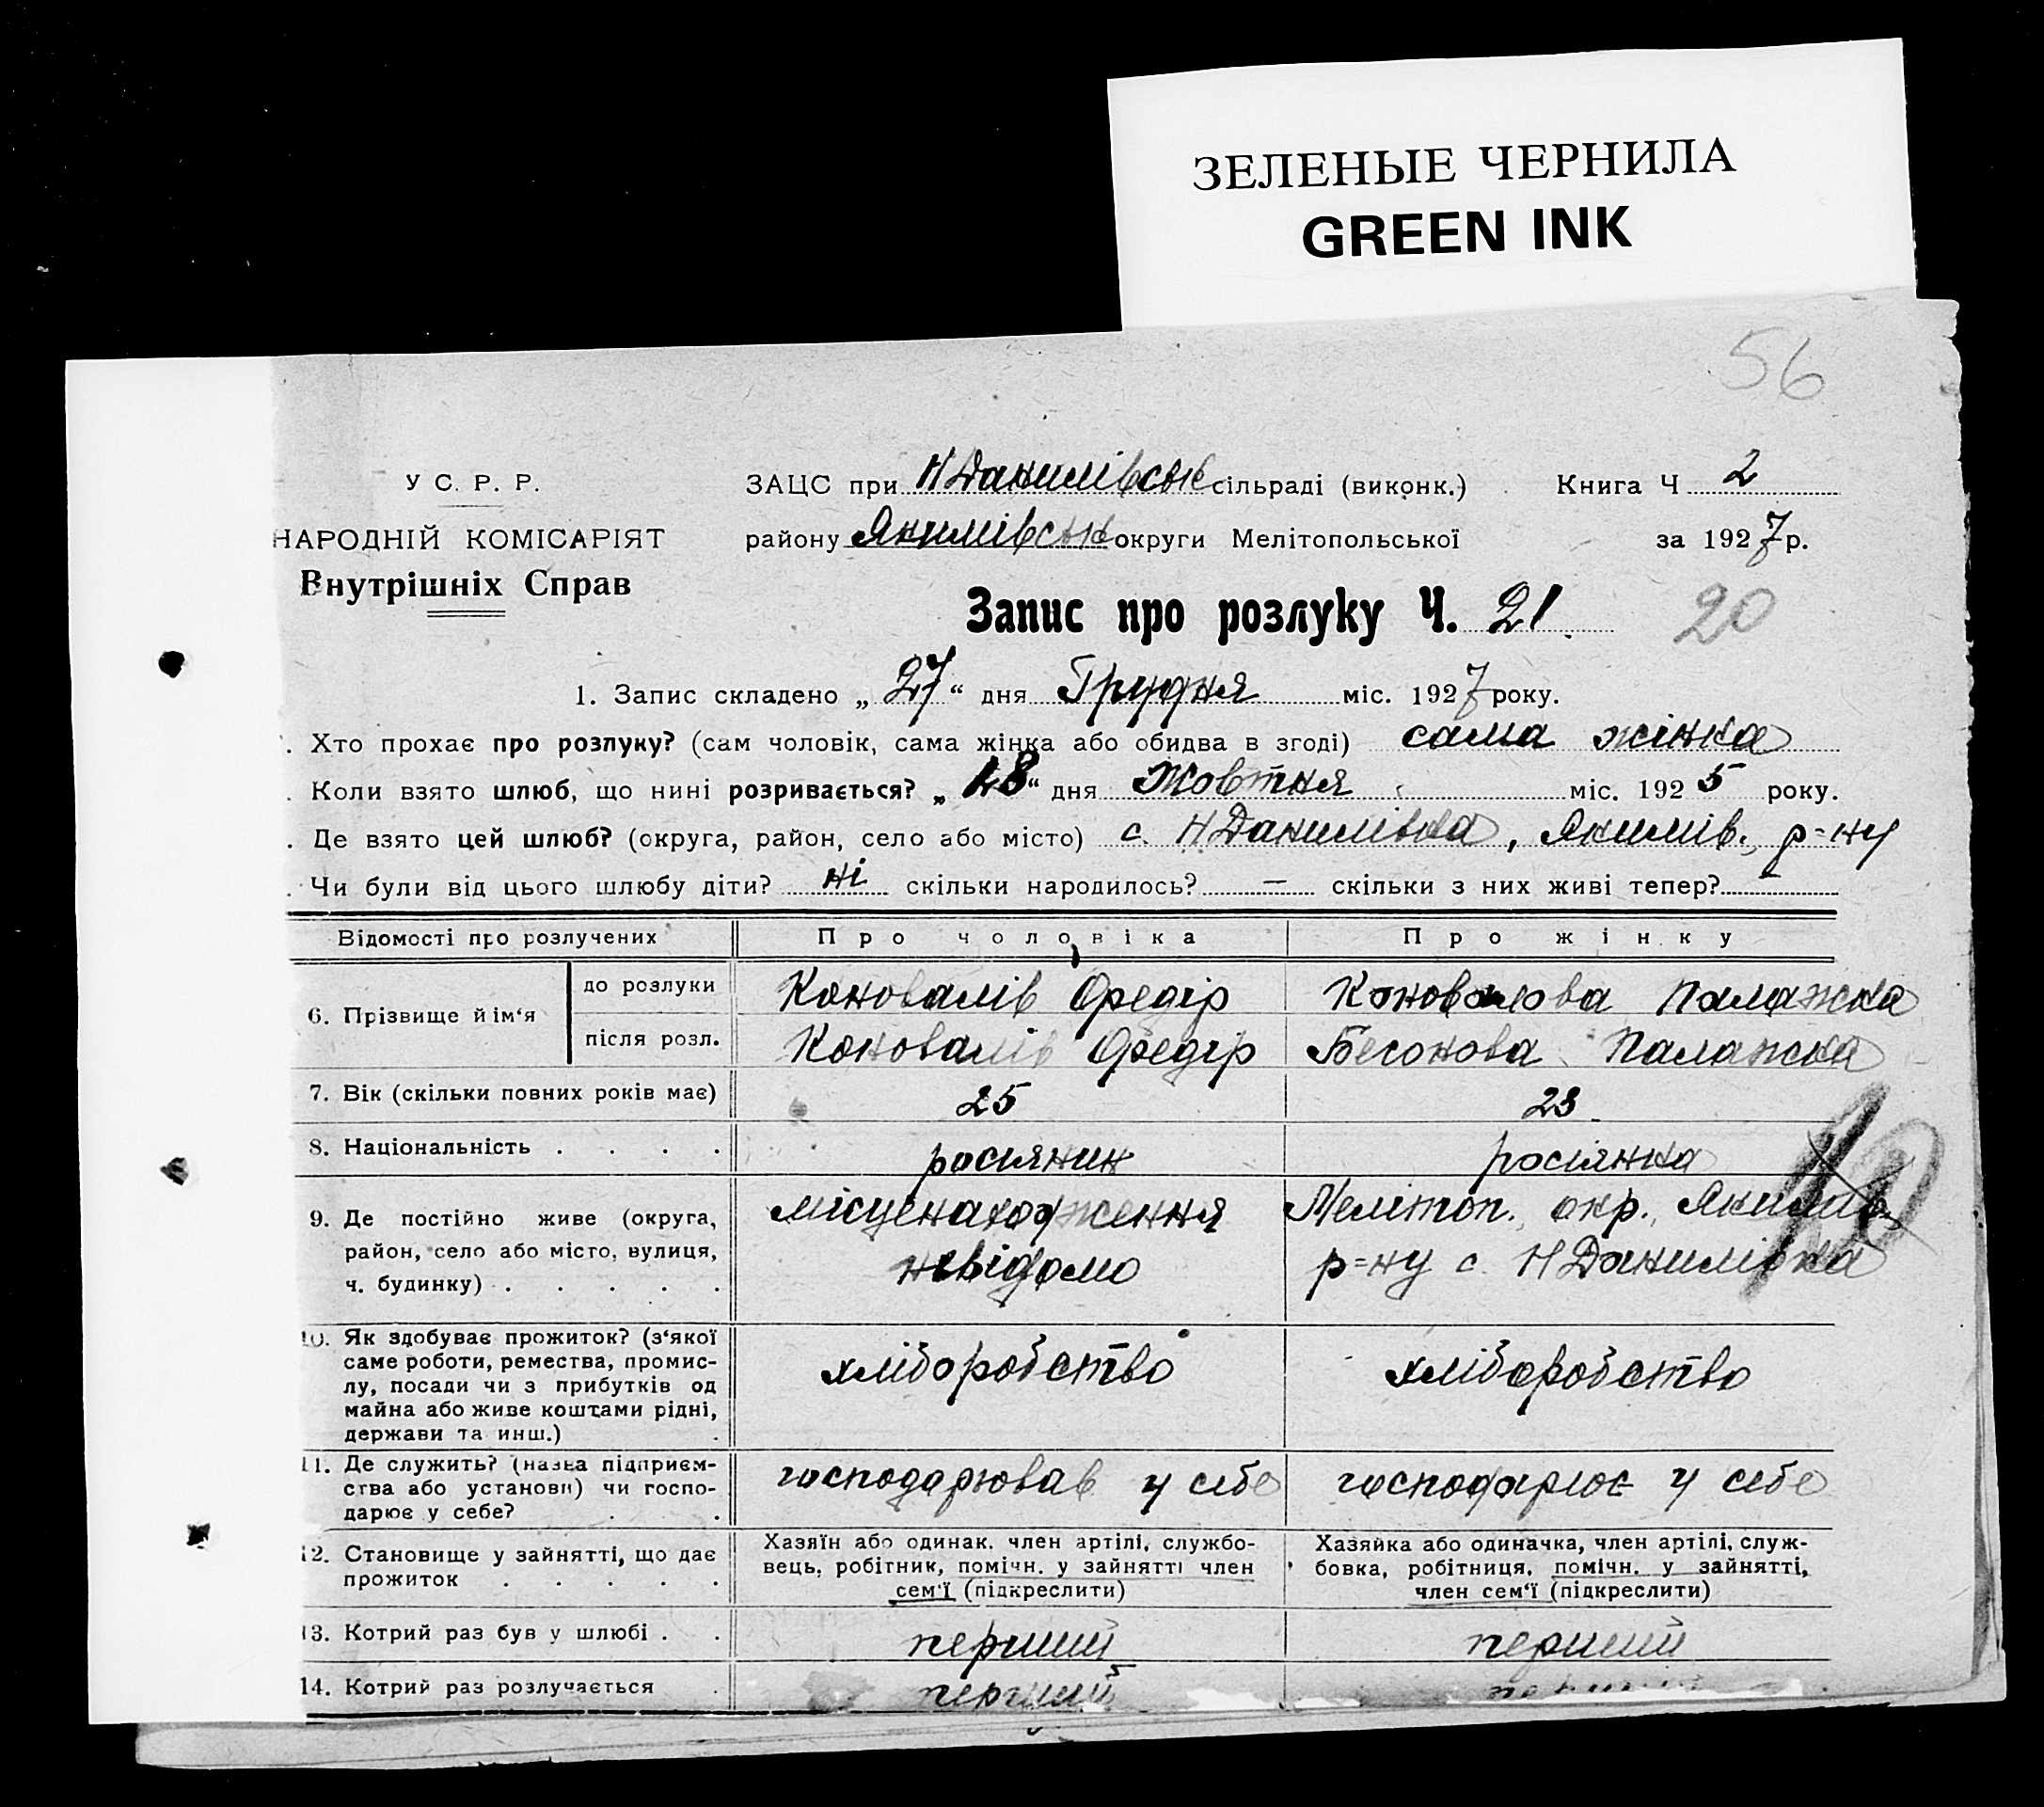 ЗЕЛЕНЫЕ ЧЕРНИЛА
GREEN INK
56
У С. Р. Р.
НАРОДНІЙ КОМІСАРІЯТ
Внутрішніх Справ
ЗАЦС при Н Данилівськ сільраді (виконк.) Книга Ч 2
району Якимівськ округи Мелітопольської за 1927 р.
Запис про розлуку Ч. 21 20
1. Запис складено „27“ дня Грудня міс. 1927 року.
. Хто прохає про розлуку? (сам чоловік, сама жінка або обидва в згоді) сама жінка
. Коли взято шлюб, що нині розривається? „18“ дня Жовтня міс. 1925 року.
. Де взято цей шлюб? (округа, район, село або місто) с. Н Данилівка, Якимів. р=ну
. Чи були від цього шлюбу діти? ні скільки народилось? — скільки з них живі тепер? —
Відомості про розлучених Про чоловіка Про жінку
6. Прізвище й ім‘я до розлуки Коновалів Федір Коновалова Палажка
після розл. Коновалів Федір Бесонова Палажка
7. Вік (скільки повних років має) 25 23
8. Національність . . . . росіянин росіянка
9. Де постійно живе (округа, район, село або місто, вулиця, ч. будинку) . . . . .
місценаходження
невідомо
Мелітоп. окр., Якимів.
р=ну с. Н Данилівка
10. Як здобуває прожиток? (з‘якої
саме роботи, ремества, промис-
лу, посади чи з прибутків од
майна або живе коштами рідні,
держави та инш.) .
хліборобство хліборобство
11. Де служить? (назва підприєм-
ства або установи) чи госпо-
дарює у себе? . .
господарював у себе господарює у себе
12. Становище у зайнятті, що дає
прожиток . . . . .
Хазяїн або одинак. член артілі, службо-
вець, робітник, помічн. у зайнятті член
сем‘ї (підкреслити)
Хазяйка або одиначка, член артілі, служ-
бовка, робітниця, помічн. у зайнятті,
член сем‘ї (підкреслити)
13. Котрий раз був у шлюбі . . перший перший
14. Котрий раз розлучається . перший перший